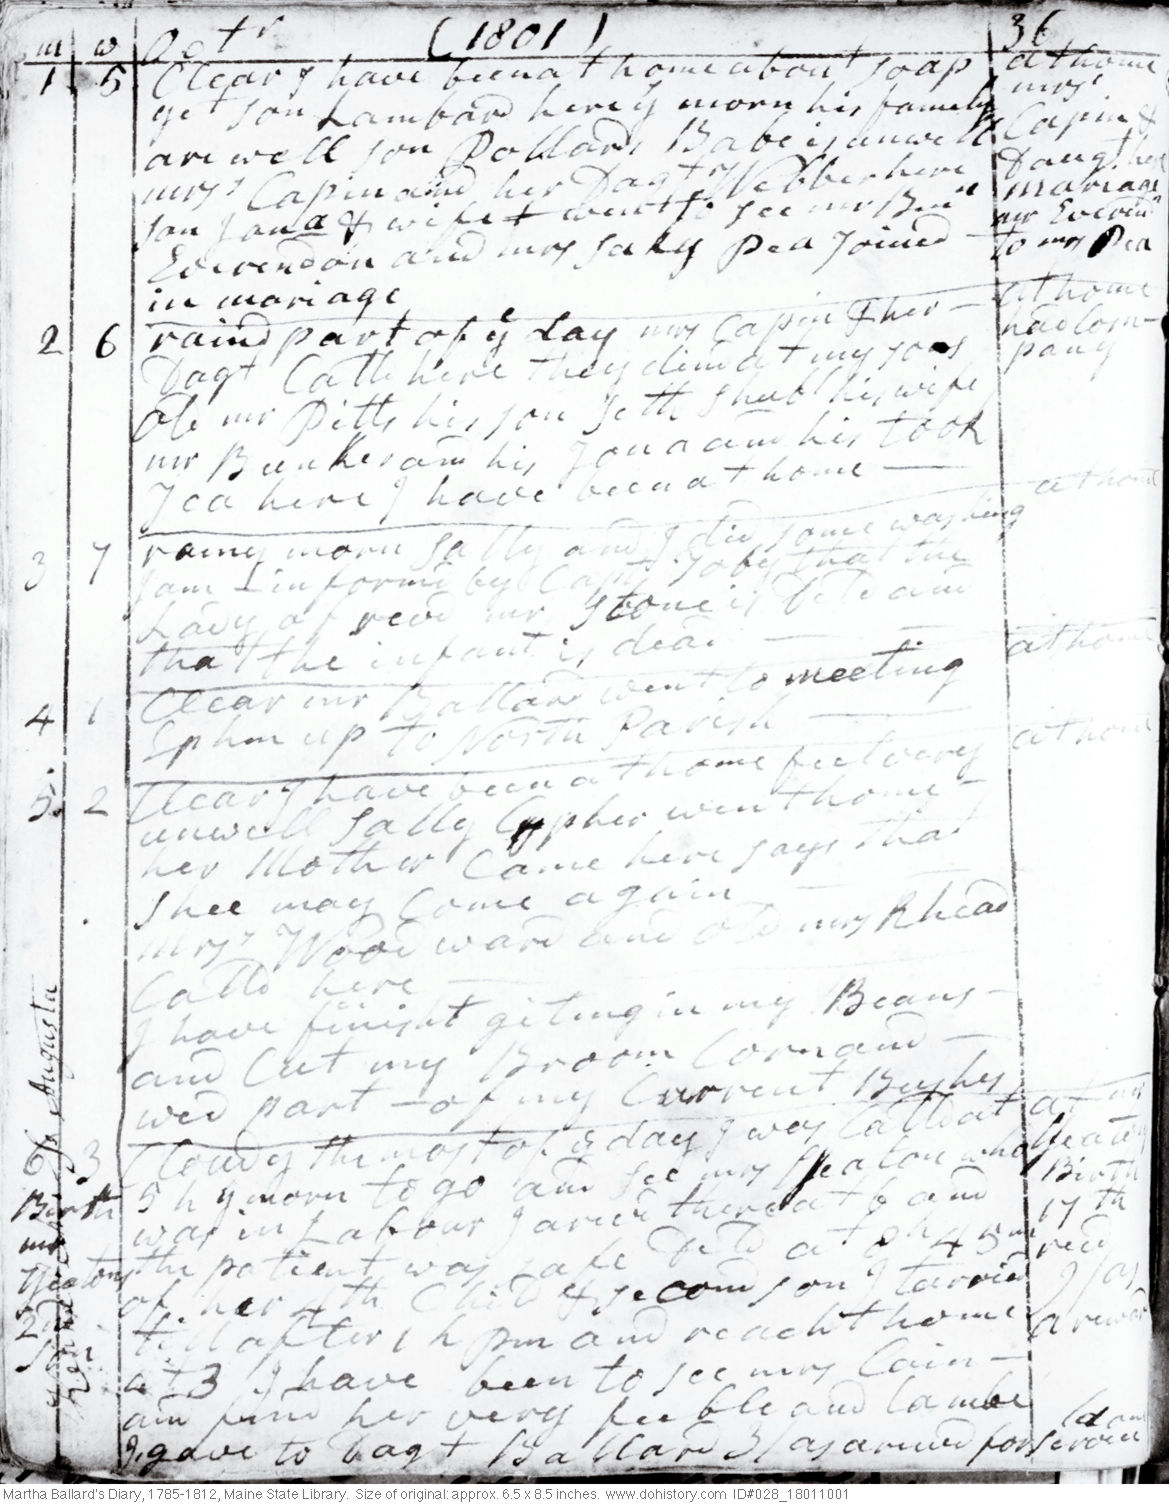 m w Octr (1801) 36
1 5 Clear I have been at home about soap at home
yet son Lambard here y morn his famely mrs
are well son Pollards Babe is unwell Capin &
mrs Capin and her Dagt Webber here Daugt here
son Jona & wife went to see mr Benn mariage
Everendon and mrs Sally Pea Joined mr Everend
in mariage to mrs Pea
2 6 raind part of ye day mrs Capin & her at home
Dagt Calld here they dind at my sons had Com-
old mr Pitts his son Seth Shub his wife pany
mr Bunker and his Jona and his took
Tea here I have been at home
3 7 rainy morn Sally and I did some washing at home
I am informd by Capt Toby that the
Lady of revd mr Stone is deld and
that the infant is dead
4 1 Clear mr Ballard went to meeting at home
Ephm up to North Parish
5 2 Clear I have been at home feel very at home
unwell Sally Cypher went home
her Mother Came here says that
shee may Come again
mrs Woodward and old mrs Rhead
Calld here
I have finisht geting in my Beans
and Cut my Broom Corn and
wed part of my Current Bushes
6 3 Cloudy the most of ye day I was Calld at at mr
Birth 5 h y morn to go and see mrs Heaton who Heatons
mr was in Labour I arivd there at 6 and Birth
Heatons the patient was safe Deld at 8 h 45 m 17th
2nd of her 4th Child & second son I tarried red
Son till after 1 h pm and reacht home
at 3 I have been to see mrs Cain
and find her very feeble and lambe
I gave to Dagt Ballard 3/ as a reward for
In Augusta